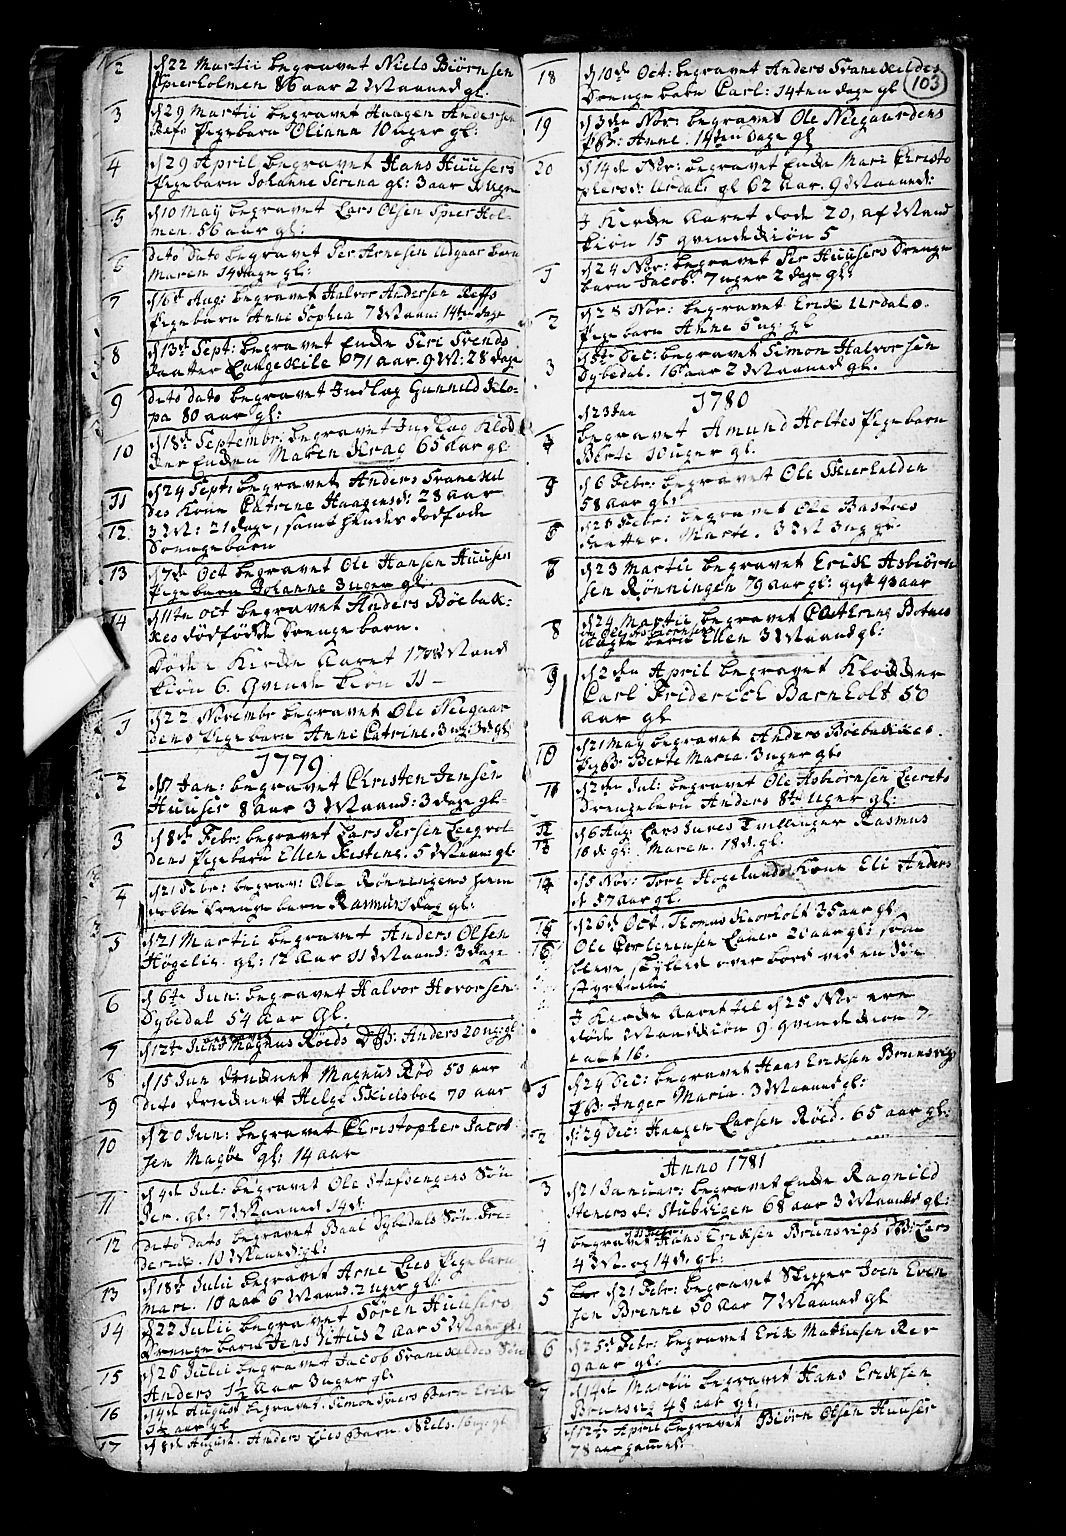 2 d 22 Martii begravet Niels Biørnsen
Spierholmen 86 aar 2 Maaned gl.
3 d 29 Martii begravet Haagen Andersen
Refs Pigebarn Oliana 10 uger gl:
4 d 29 April begravet Hans Huusers
Pigebarn Johanne Serena gl: 3 aar
5 d 10 Maÿ begravet Lars Olsen Spier Hol-
men. 56 aar gl:
6 dito dato begravet Per Arnesen barn
Maren 14 dage gl:
7 d 16d Aug: begravet Halvor Andersen Reffs
Pigebarn Anne Sophia 7 Maan: 14ten dage
8 d 13d Sept: begravet Enke Siri Svends
daater Langekile 71 aar 9 M: 28 dage
9 dito dato begravet Indlag Gunnild Klo-
pa 80 aar gl:
10 d 18d Septembr: begravet Indlag Klod
der Enken Maren Krag 65 aar gl:
11 d 24 Sept: begravet Anders Svanekil
des Kone Catrine Haagensd: 28 aar
12 3 M: 21 dage, samt hendes dødfødde
Drengebarn
13 d 7de Oct begravet Ole Hansen Huuser
Pigebarn Johanne 3 uger gl:
14 d 11ten oct begravet Anders Bøebak-
kes dødfødde Drengebarn.
Døde i Kirke Aaret 1778 Mand
kiøn 6. Qvinde kiøn 11 -
1 d 22 Novembr begravet Ole Neegaar
dens Pigebarn Anne Catrine. 3 ug: 3 d gl
1779
2 d 17 Jan: begravet Christen Jensen
Huuser 8 aar 3 Maaned: 3 dage gl-
3 d 8de Febr: begravet Lars Persen Leegrot
dens Pigebarn Ellen Kistene. 5 Maan: gl
4 d 21 Febr: begrav: Ole Rønningens hiem
døbte Drengebarn Rasmus 1 dag gl:
5 d 21 Martii begravet Anders Olsen
Høgelie. gl: 12 Aar 11 Maaned: 3 dage
6 d 6te Jun: begravet Halvor Hovorsen
Dybedal 54 Aar Gl.
7 d 12te Junii begravet Magnus Røeds DB: Anders 20 ug: gl
8 d 15 Jun druknet Magnus Rød 50 aar
9 dito druknet Helge Skielsboe 70 aar
10 d 20 Jun: begravet Christopher Jacob
sen Magøe gl: 14 aar
11 d 4de Jul: begravet Ole Stafsengens Søn
Per. gl: 7 Maaned 14 d:
12 dito dato begravet Baal Dybedals Søn Fre-
derik. 10 Maaned gl:
13 d 18d Julii begravet Arne Lies Pigebarn
Mari. 10 aar 6 Maaned 2 uger gl:
14 d 22 Julii begravet Søren Huusers
Drengebarn Jens Titus 2 Aar 5 Maan: gl:
15 d 26 Julii begravet Jacob Svanekildes Søn
Anders 1½ Aar 3 uger gl:
16 d 4de August begravet Simon Barn Erik
aar gl
17 d 8de August. Anders Lies Barn Niels. 16 ug: gl
103
18 d 10de Oct: begravet Anders Svanekildes
Drengebarn Carl: 14ten dage gl
19 d 3den Nbr: begravet Ole Neegaardens
PB: Anne. 14ten dage gl
20 d 14de Nbr: begravet Enke Mari Christo
phersd: Urdals gl 62 Aar. 9 Maaned:
I Kirke Aaret døde 20, af Mand
kiøn 15 qvindekiøn 5
1 d 24 Nov: begravet Per Huusers Drenge
barn Jacob: 7 uger 2 dage gl:
2 d 28 Nov: begravet Erik Urdals
Pigebarn Anne 5 ug: gl
3 d 5te Dec: begravet Simon Halvorsen
Dybedal. 16 aar 2 Maaned gl.
1780
d 23 Jan
begravet Amund Holtes Pigebarn
Børte 10 uger gl.
5 d 6 Febr: begravet Ole Skierkelden
58 aar gl:
6 d 25 Febr: begravet Ole Bastøes
daatter. Marte. 3 M 3 ug gl.
7 d 23 Martii begravet Erik Asbiørn
sen Rønningen 79 aar gl: gift 43 aar
8 d 24 Martii begravet Cathrine Botnes
barn Ellen 3 Maaned gl:
9 d 2den April begravet Klokker
Carl Friderich Barnholt 50
aar gl
10 d 21 Maÿ begravet Anders Bøebakkes
PigB: Berte Maria. 3 uger gl:
11 d 2den Jul: begravet Ole Asbiørnsen Leerets
Drengebarn Anders 8te Uger gl:
12 d 6 Aug: Lars Tvillinger Rasmus
13 18 d: gl: Maren. 18 d. gl:
14 d 5 Nov: Tore Høgelunds Kone Eli Anders
d 57 aar gl:
15 d 26d Oct. Thomas Knorholt 35 aar gl
16 Ole Corlenensen Lauer 20 aar gl: som
bleve skyllede over bord ved en Søe
styrtelse
I Kirke Aaret til d 25 Nbr ere
døde Mandkiøn 9 qvindekiøn 7
i alt 16.
1 d 24 Dec: begravet Hans Eriksen Brunsvigs
PB: Inger Maria. 3 Maaned gl:
2 d: 29 Dec: Haagen Larsen Røed. 65 aar gl:
Anno 1781
3 d 21 Januar: begravet Enke Ragnild
Stenersd: Stubbigen 68 aar 3 Maaned gl:
4 begravet Hans Eriksen Brunsvigs DB: Lars
4 M. og 14 d: gl:
5 d 21 Febr: begravet Skipper Joen Even
sen Brenne 50 Aar 7 Maaned gl
6 d 25de Febr: begravet Erik Mathiesen Rør
9 aar gl:
7 d 14de Martii begravet Hans Eriksen
Brunsvig 48 aar gl.
8 d 12te April begravet Biørn Olsen Huuser
78 aar gammel: